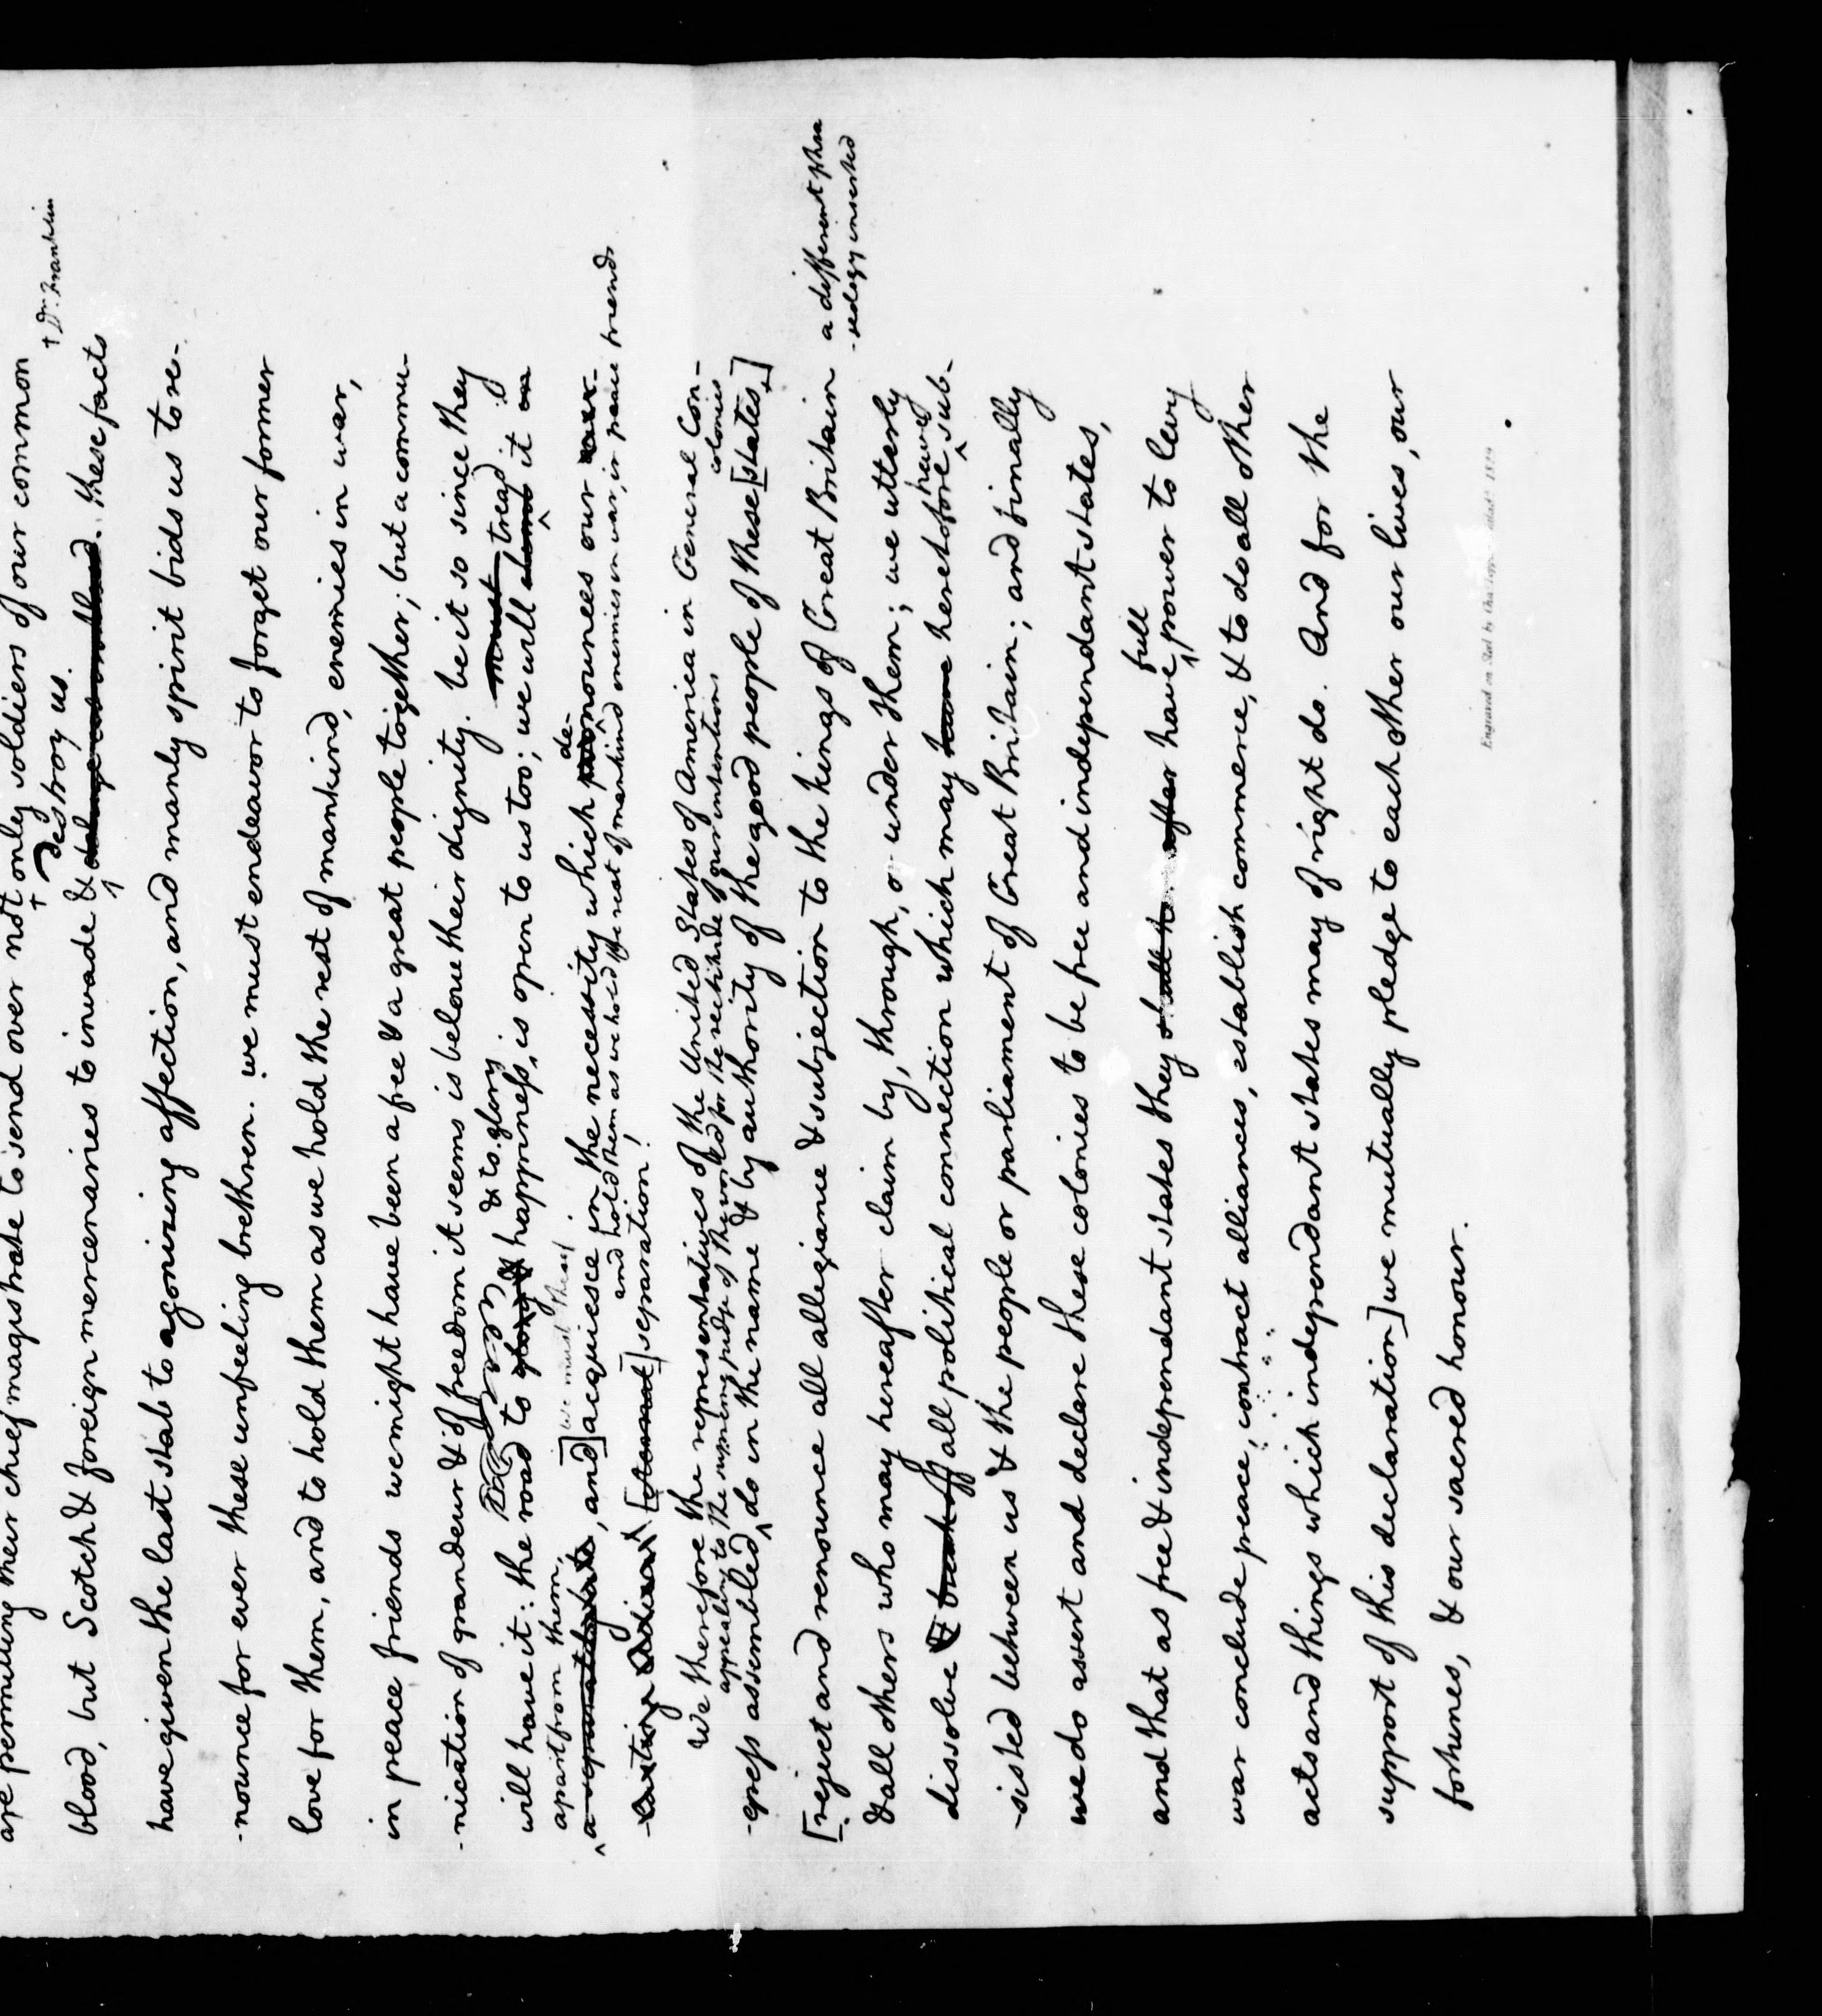 are permitting their chief magistrate to send over not only soldiers of our common
† Dr. Franklin
destroy us.
blood, but Scotch & foreign mercenaries to invade & deluge us in blood. these facts
have given the last stab to agonizing affection, and manly spirit bids us to re-
-nounce for ever these unfeeling brethren. we must endeavor to forget our former
love for them, and to hold them as we hold the rest of mankind, enemies in war,
in peace friends we might have been a free & a great people together; but a commu-
-nication of grandeur & of freedom it seems is below their dignity. be it so since they
& to glory must tread
will have it: the road to glory & happiness, is open to us too; we will climb it in
apart from them, we must de-
a separately state, and] acquiesce in the necessity which pronounces our ever-
and hold them as we hold the rest of mankind enemies in war, in peace friends
-lasting Adieu! [eternal] separation!
We therefore the representatives of the United States of America in General Con-
appealing to the supreme judge of the world for the rectitude of our intentions colonies
-gress assembled do in the name & by authority of the good people of these [states,]
[reject and renounce all allegiance & subjection to the kings of Great Britain a different phra
-seology inserted
& all others who may hereafter claim by, through, or under them; we utterly
have
dissolve & break off all political connection which may have heretofore sub-
-sisted between us & the people or parliament of Great Britain; and finally
we do assert and declare these colonies to be free and independant states,
full
and that as free & independant states they shall hereafter have power to levy
war conclude peace, contract alliances, establish commerce, & to do all other
acts and things which independant states may of right do. And for the
support of this declaration] we mutually pledge to each other our lives, our
fortunes, & our sacred honour.